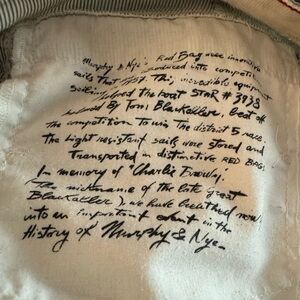 Murphy & Nye's Red Bag were
produced into
sails that This, incredible equipment
helped the boat STAR # 3738
By Tom Blackaller, beat off
the competition to win The district 5 race.
the light resistant sails were stored and
Transported in distinctive RED BAGS
In memory of "Charlie
The nickname of the late great
Blackaller), we have breathed new
into an important event in the
History of Murphy & Nye-